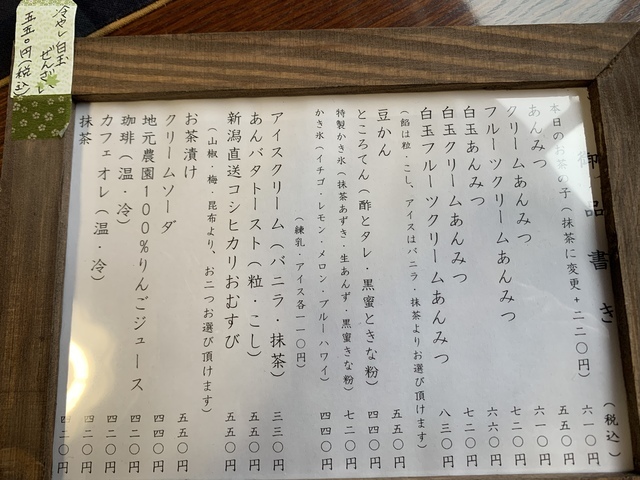 御品書き（税込）
本日のお茶の子（抹茶に変更+二二〇円） 六一〇円
あんみつ 五五〇円
クリームあんみつ 六一〇円
フルーツクリームあんみつ 七二〇円
白玉あんみつ 六六〇円
白玉クリームあんみつ 七二〇円
白玉フルーツクリームあんみつ 八三〇円
（餡は粒・こし、アイスはバニラ・抹茶よりお選び頂けます）
豆かん 五五〇円
ところてん（酢とタレ・黒蜜ときな粉） 四四〇円
特製かき氷（抹茶あずき・生あんず・黒蜜きな粉） 七二〇円
かき氷（イチゴ・レモン・メロン・ブルーハワイ） 四四〇円
（練乳・アイス各一一〇円）
アイスクリーム（バニラ・抹茶） 三三〇円
あんバタートースト（粒・こし） 五五〇円
新潟直送コシヒカリおむすび 五五〇円
（山椒・梅・昆布より、お二つお選び頂けます）
お茶漬け 五五〇円
クリームソーダ 四四〇円
地元農園100%りんごジュース 四二〇円
珈琲（温・冷） 四二〇円
カフェオレ（温・冷） 四二〇円
抹茶 四二〇円
冷やし白玉
ぜんざい
五五〇円（税込）